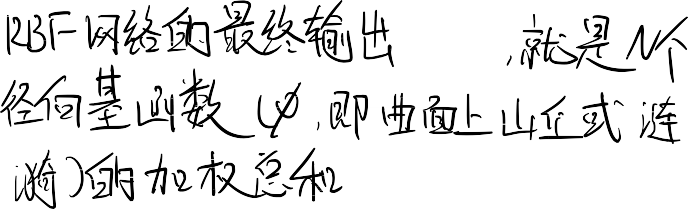 RBF网络的最终输出 ,就是N个
径向基函数(φ,即曲面上山丘或涟
漪)的加权总和